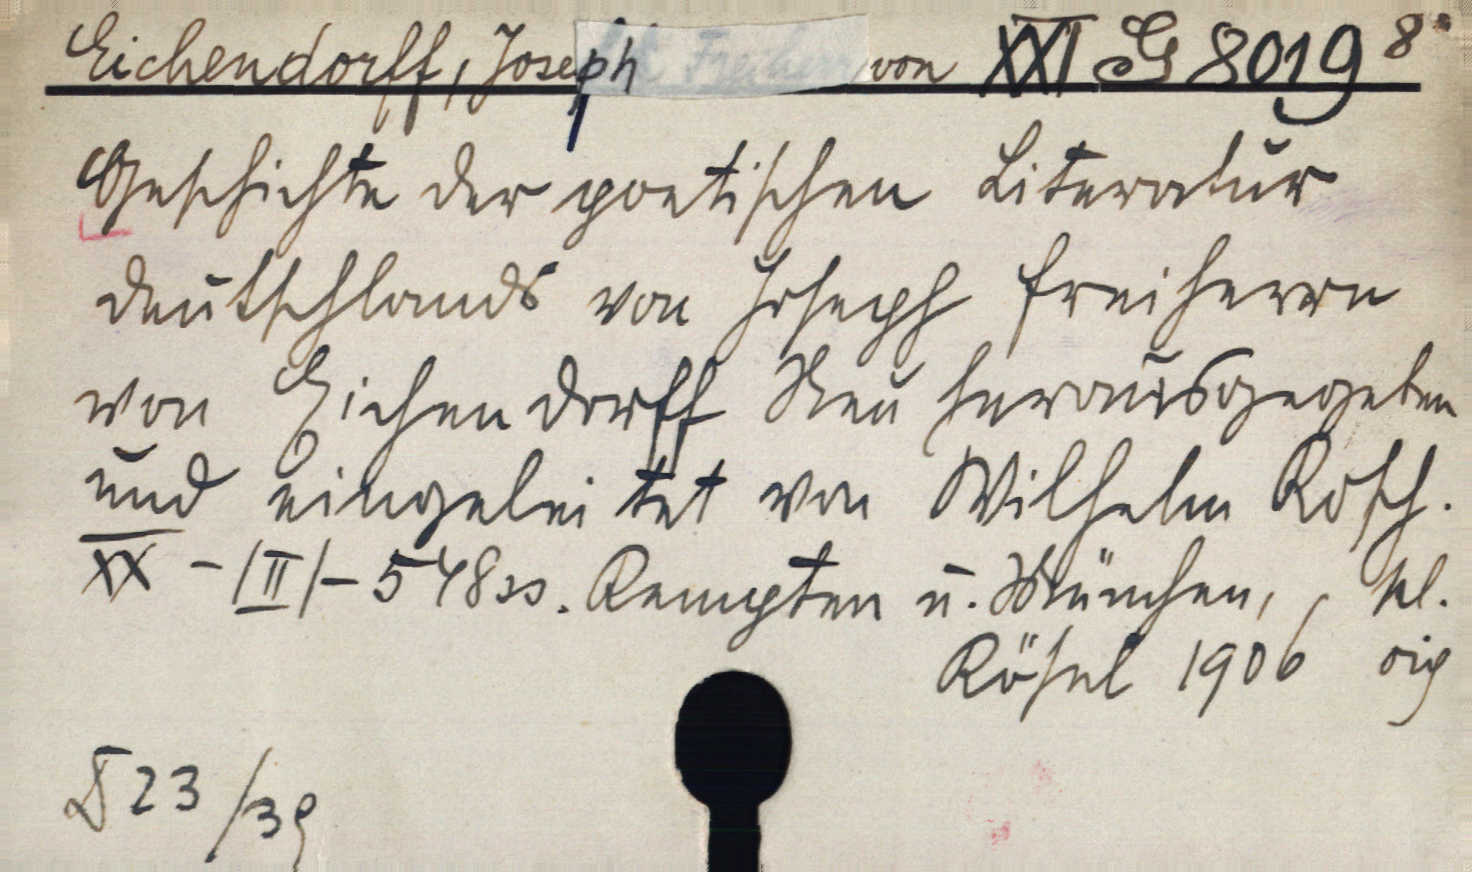 Eichendorff, Joseph von XXI G 8019 8°
Geschichte der poetischen Literatur
Deutschlands von Joseph Freiherrn
von Eichendorff Neu herausgegeben
und eingeleitet von Wilhelm Kosch.
XX - |II| - 548 ss. Kempten u. München, kl.
Kösel 1906
D 23/39